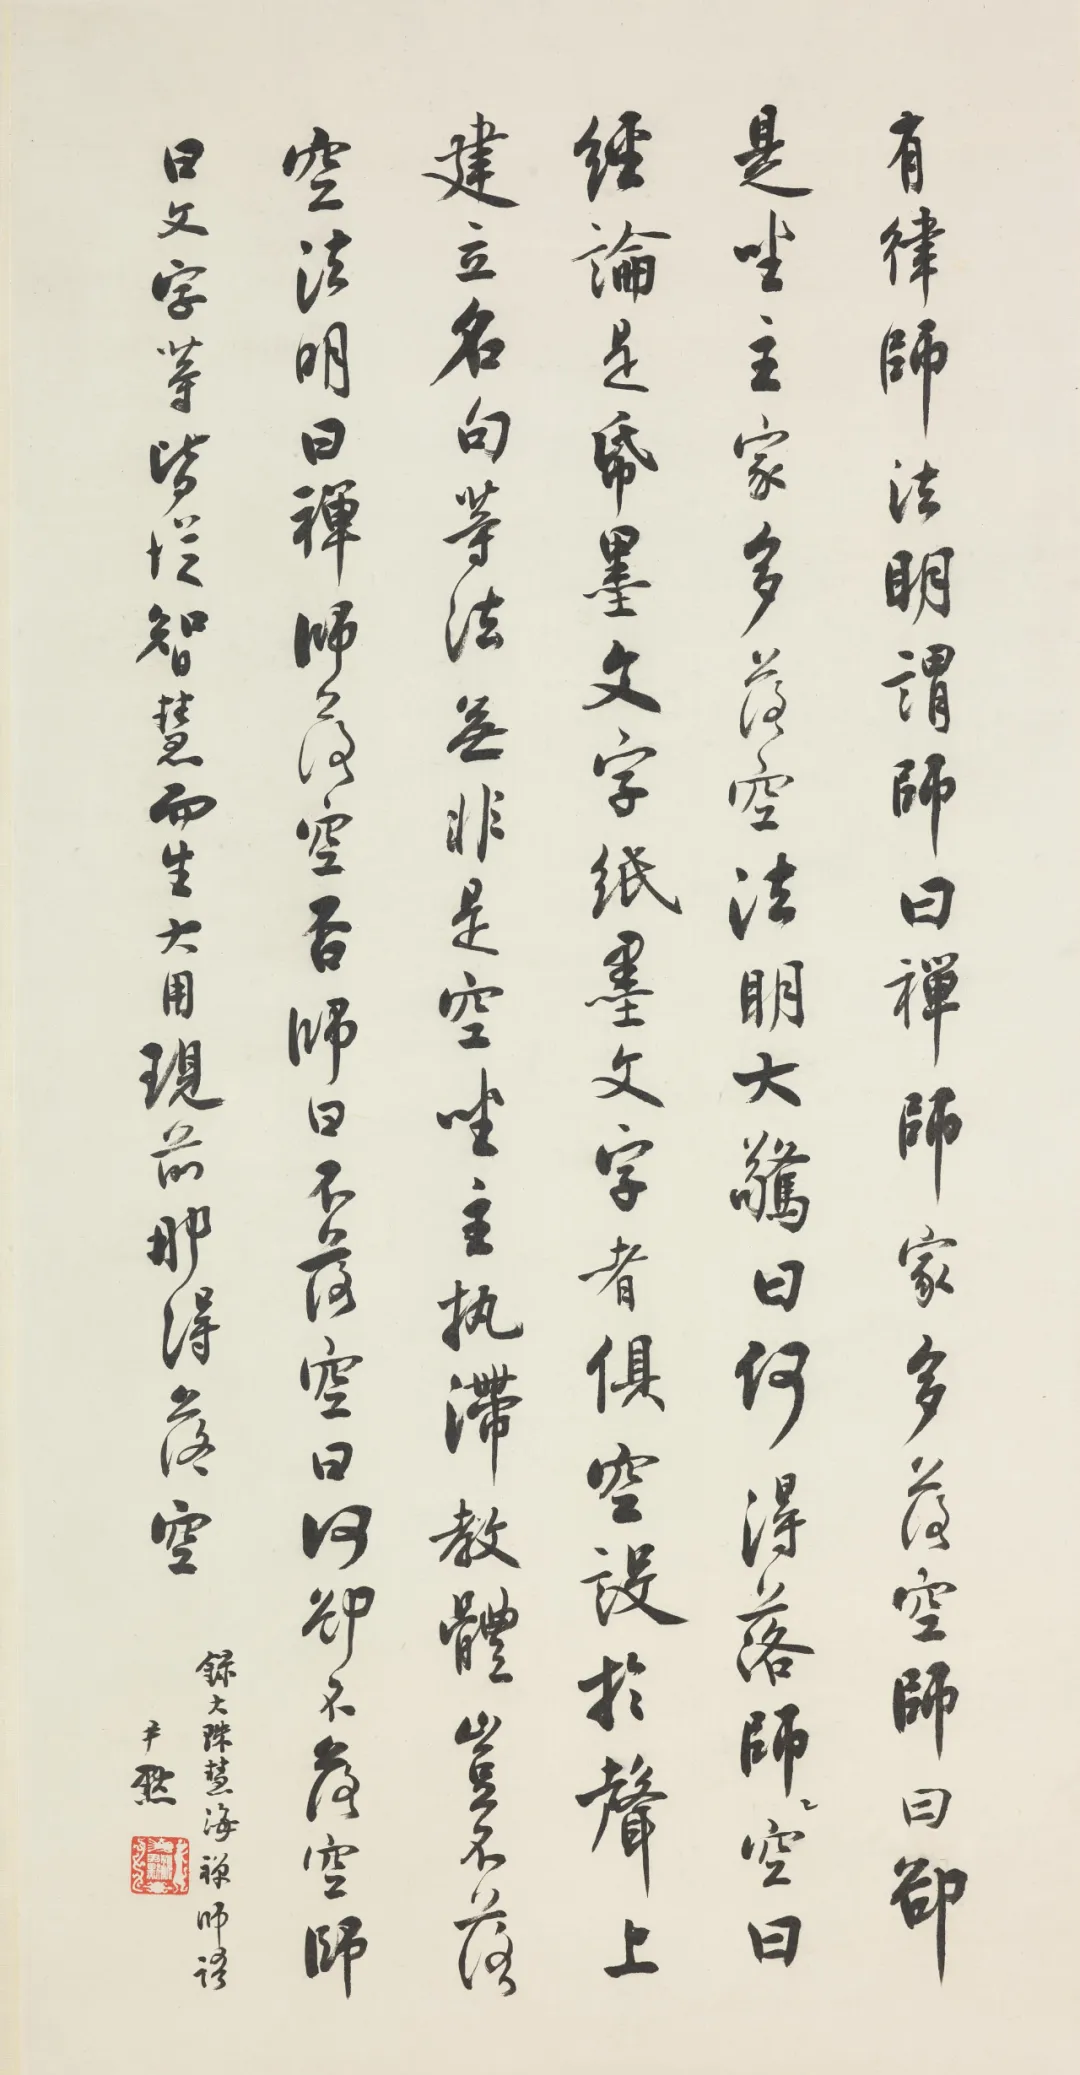 有律師法明謂師曰禪師家多落空師曰卻
是坐主家多落空法明大驚曰何得落師空曰
經論是帋墨文字紙墨文字者俱空設於聲上
建立名句等法無非是空坐主執滯教體豈不落
空法明曰禪師落空否師曰不落空曰何卻不落空師
曰文字等皆從智慧而生大用現前那得落空
錄大珠慧海禪師語
尹默